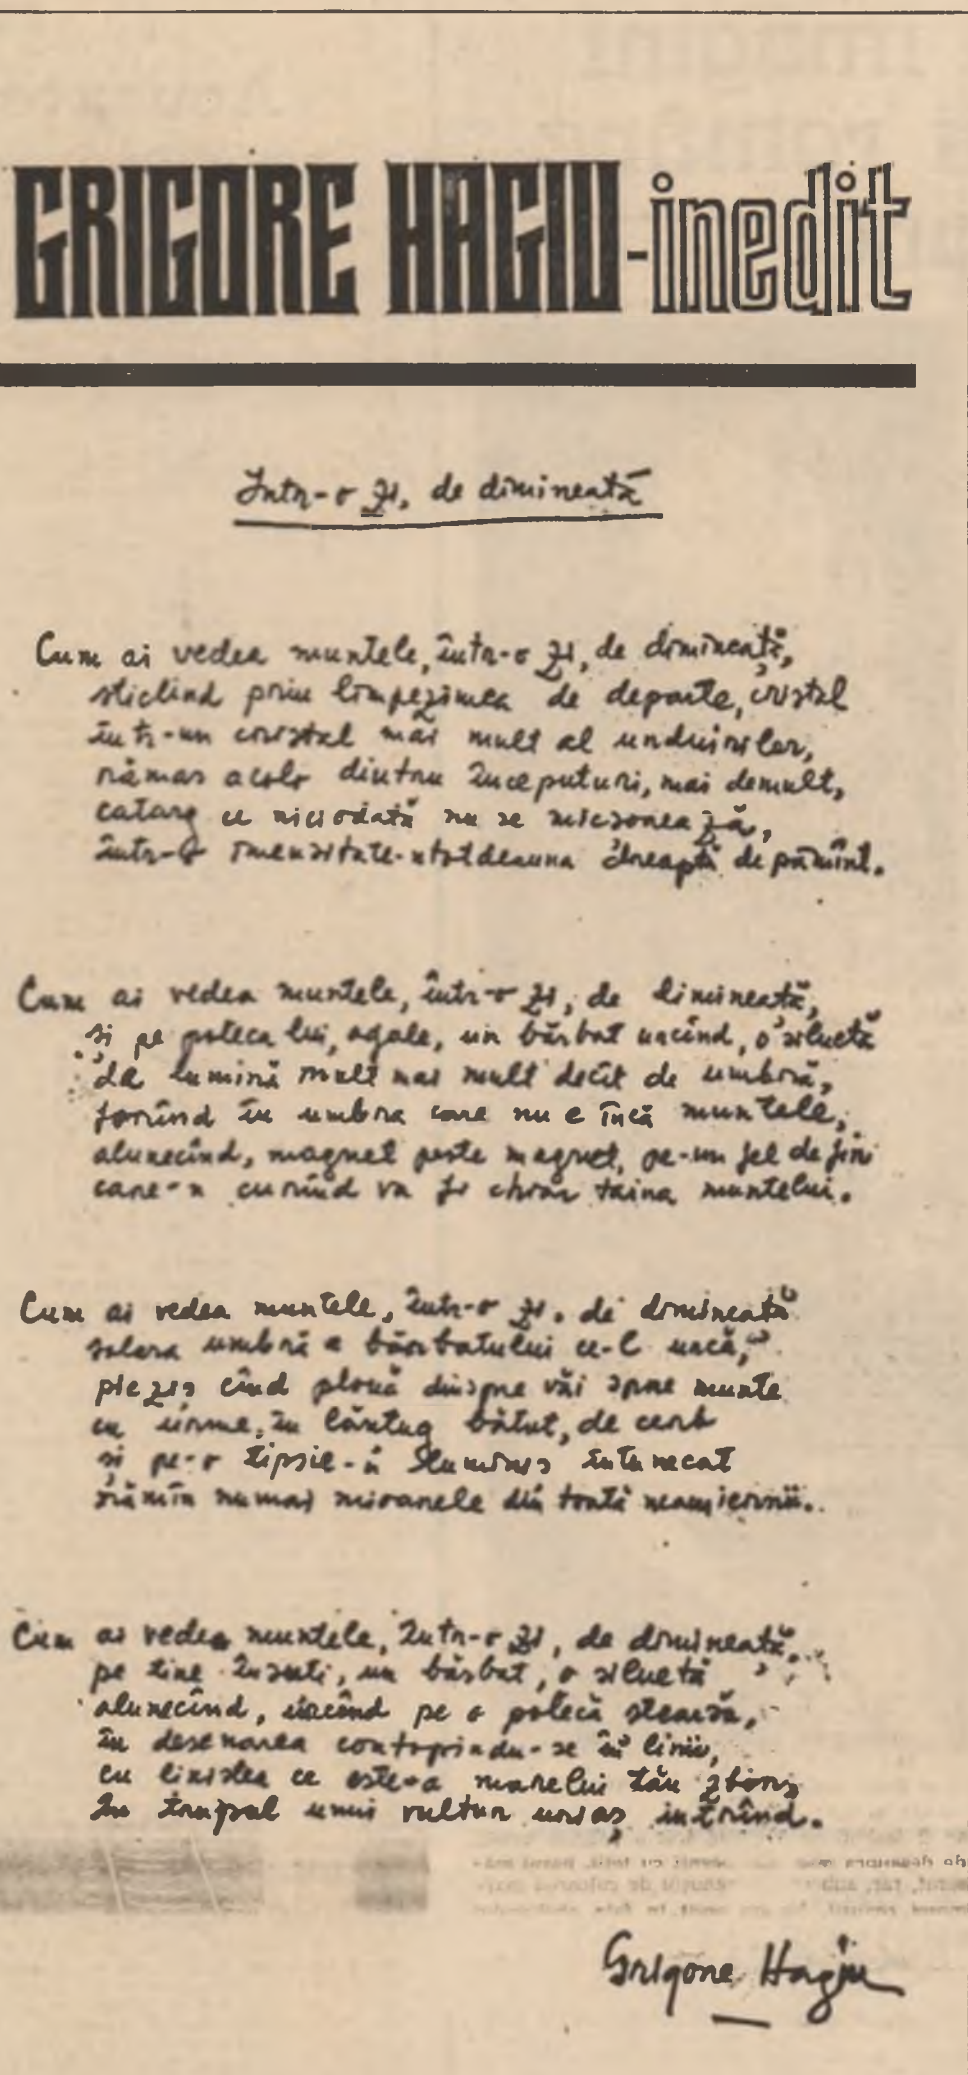 GRIGORE HAGIU-inedit
Într-o zi, de dimineață
Cum ai vedea muntele, într-o zi, de dimineață,
sticlind prin limpezimea de departe, cristal
într-un cristal mai mult al unduirilor,
rămas acolo dintru începuturi, mai demult,
catarg ce niciodată nu se micșorează,
într-o imensitate-ntotdeauna dreaptă de pămînt.
Cum ai vedea muntele, într-o zi, de dimineață,
și pe poteca lui, agale, un bărbat urcînd, o siluetă
de lumină mult mai mult decît de umbră,
forînd în umbra care nu e încă muntele,
alunecînd, magnet peste magnet, pe-un fel de fir
care-n curînd va fi chiar taina muntelui.
Cum ai vedea muntele, într-o zi, de dimineață
solara umbră a bărbatului ce-l urcă,
pieziș cînd plouă dinspre văi spre munte
cu urme, în bătut, de cerb
și pe-o tipsie-n luminiș întunecat
rămîn numai mioarele din toată iernii.
Cum ai vedea muntele, într-o zi, de dimineață,
pe tine însuți, un bărbat, o siluetă
alunecînd, urcînd pe o potecă stearsă,
în desenarea contopindu-se în linii,
cu liniștea ce este-a marelui tău zbor
în trupul unui vultur uriaș intrînd.
Grigore Hagiu